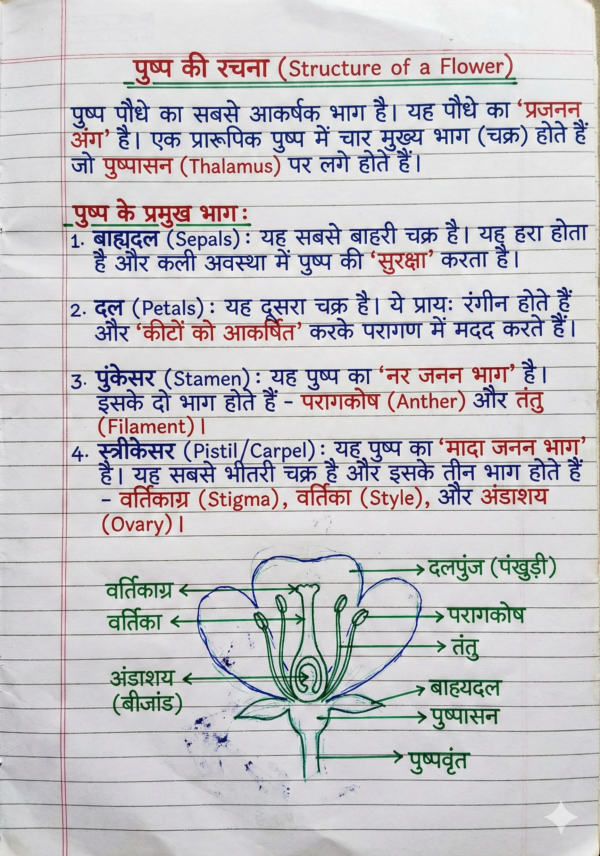 पुष्प की रचना (Structure of a Flower)
पुष्प पौधे का सबसे आकर्षक भाग है। यह पौधे का ‘प्रजनन
अंग’ है। एक प्रारूपिक पुष्प में चार मुख्य भाग (चक्र) होते हैं
जो पुष्पासन (Thalamus) पर लगे होते हैं।
पुष्प के प्रमुख भाग:
1. बाह्यदल (Sepals): यह सबसे बाहरी चक्र है। यह हरा होता
है और कली अवस्था में पुष्प की ‘सुरक्षा’ करता है।
2. दल (Petals): यह दूसरा चक्र है। ये प्रायः रंगीन होते हैं
और ‘कीटों को आकर्षित’ करके परागण में मदद करते हैं।
3. पुंकेसर (Stamen): यह पुष्प का ‘नर जनन भाग’ है।
इसके दो भाग होते हैं – परागकोष (Anther) और तंतु
(Filament)।
4. स्त्रीकेसर (Pistil/Carpel): यह पुष्प का ‘मादा जनन भाग’
है। यह सबसे भीतरी चक्र है और इसके तीन भाग होते हैं
– वर्तिकाग्र (Stigma), वर्तिका (Style), और अंडाशय
(Ovary)।
दलपुंज (पंखुड़ी)
वर्तिकाग्र
वर्तिका
परागकोष
तंतु
अंडाशय
(बीजांड)
बाहयदल
पुष्पासन
पुष्पवृंत